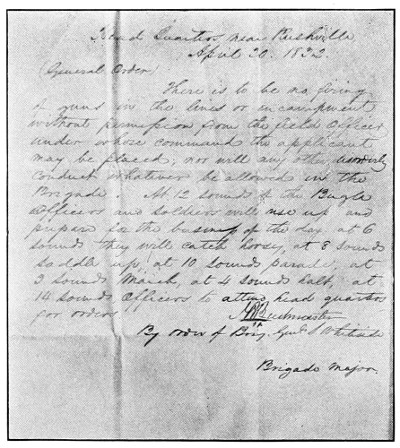 Head Quarters near Rushville
April 20. 1832.
General Order,
There is to be no firing
of guns in the lines or encampment
without permission from the field officer
under whose command the applicant
may be placed, nor will any other disorderly
conduct whatever be allowed in the
Brigade. At 12 sounds of the Bugle
Officers and Soldiers will rise up and
prepare for the business of the day at 6
sounds they will catch horses, at 8 sounds
saddle up, at 10 sounds parade, at
3 sounds March, at 4 sounds halt, at
14 sounds Officers to attend head quarters
for orders
By order of Brig. Genl S Whiteside
Brigade Major.